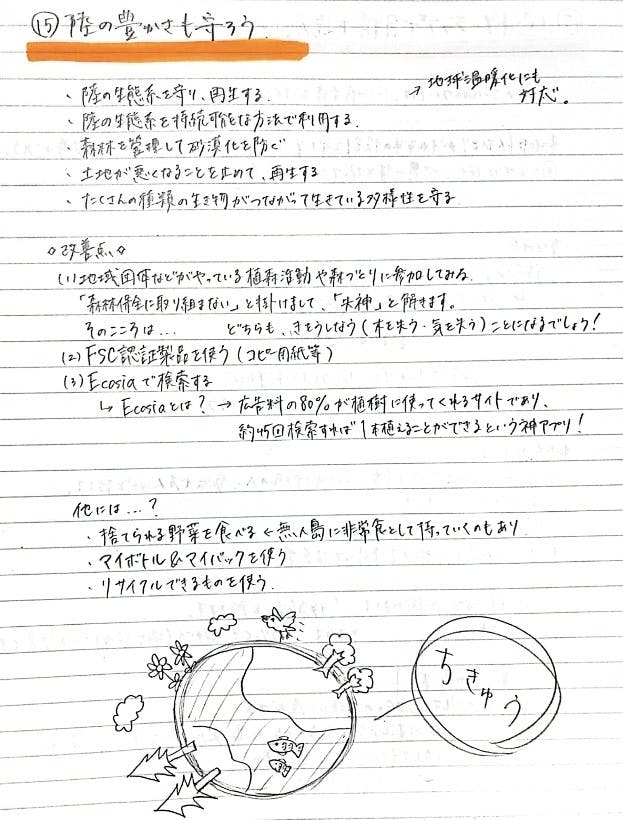 ⑮ 陸の豊かさも守ろう
・陸の生態系を守り、再生する。 → 地球温暖化にも対応。
・陸の生態系を持続可能な方法で利用する。
・森林を管理して砂漠化を防ぐ
・土地が悪くなることを止めて、再生する
・たくさんの種類の生き物がつながって生きている多様性を守る
◇改善点◇
(1)地域団体などがやっている植森活動や森づくりに参加してみる。
「森林保全に取り組まない」と掛けまして、「失神」と解きます。
そのこころは… どちらも、きをうしなう(木を失う・気を失う)ことになるでしょう!
(2) FSC認証製品を使う(コピー用紙等)
(3) Ecosiaで検索する
↳ Ecosiaとは? → 広告料の80%が植樹に使ってくれるサイトであり、
約45回検索すれば1本植えることができるという神アプリ!
他には…?
・捨てられる野菜を食べる ← 無人島に非常食として持っていくのもあり
・マイボトル&マイバックを使う
・リサイクルできるものを使う
ちきゅう